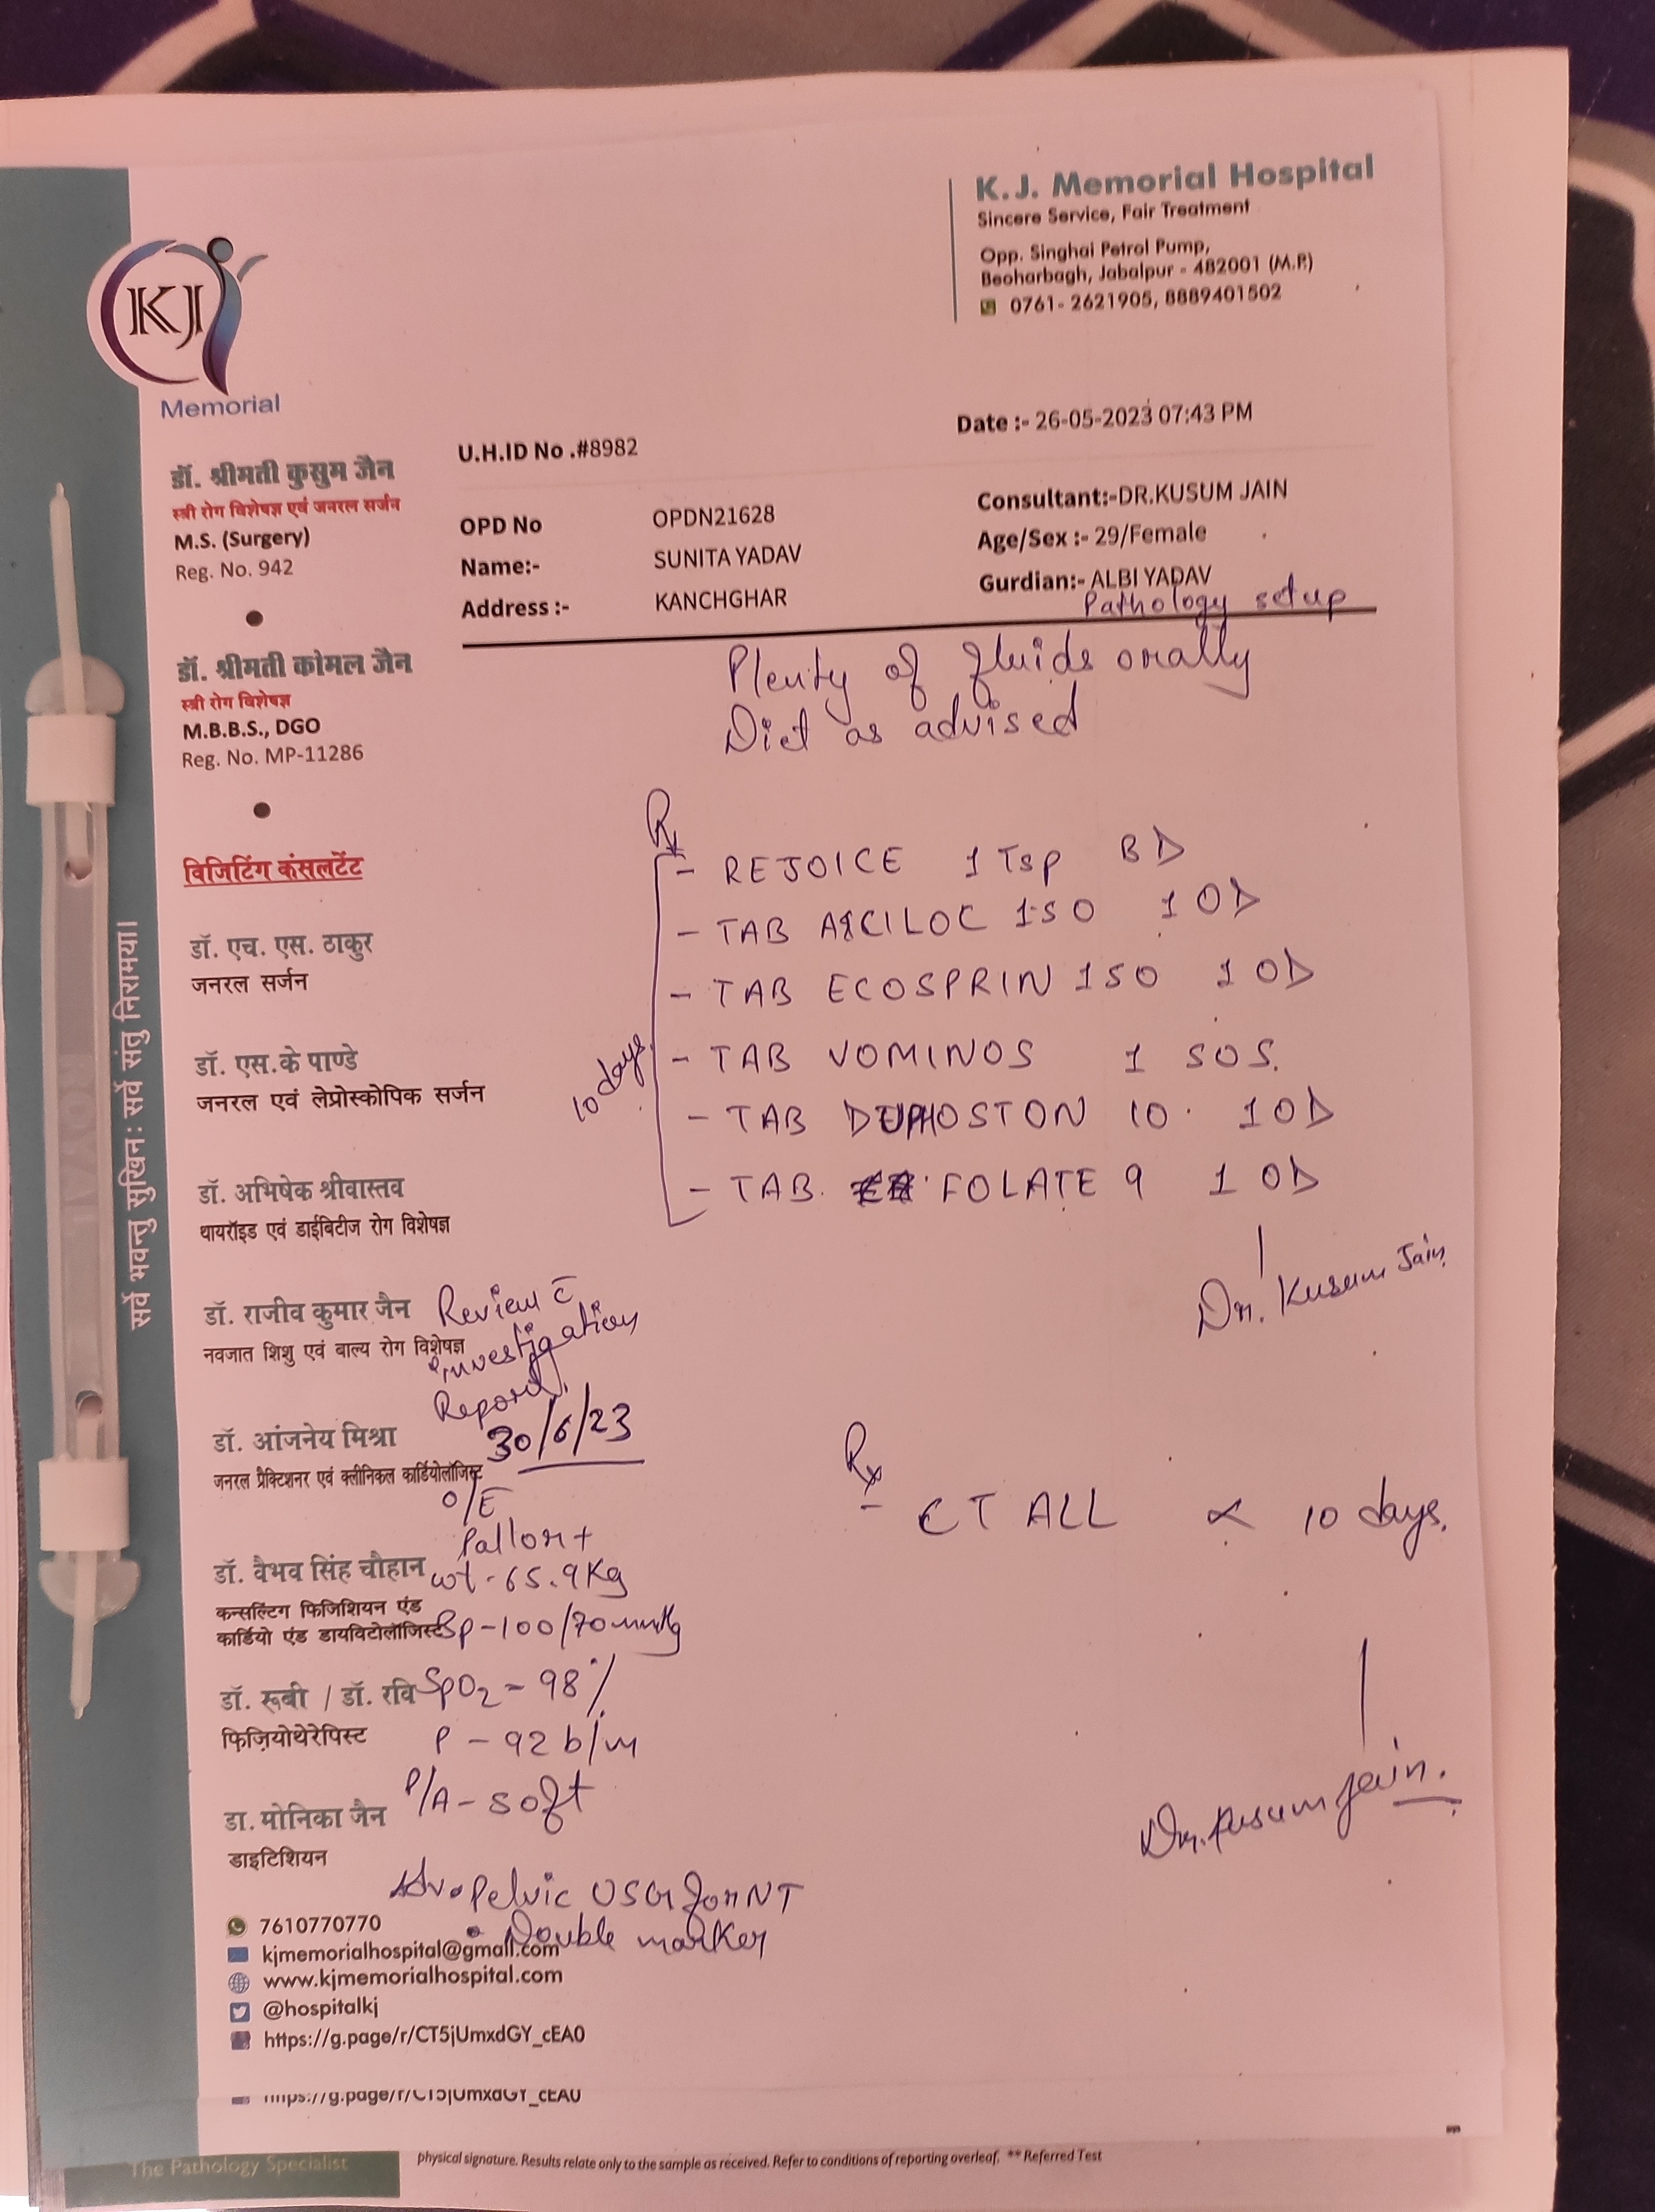 K.J. Memorial Hospital
Sincere Service, Fair Treatment
Opp. Singhai Petrol Pump,
Beoharbagh, Jabalpur - 482001 (M.P.)
0761- 2621905, 8889401502
KJ
Memorial
Date :- 26-05-2023 07:43 PM
U.H.ID No .#8982
OPD No OPDN21628
Consultant:-DR.KUSUM JAIN
Name:- SUNITA YADAV
Age/Sex :- 29/Female
Address :- KANCHGHAR
Gurdian:- ALBI YADAV
Pathology setup
Plenty of fluids orally
Diet as advised
Rx
- REJOICE 1 Tsp BD
- TAB ACILOC 150 1 OD
- TAB ECOSPRIN 150 1 OD
- TAB VOMINOS 1 SOS.
- TAB DUPHOSTON 10 1 OD
- TAB. FOLATE 9 1 OD
10 days
Dr. Kusum Jain
Review c̅
investigation
Report
30/6/23
O/E
Pallor +
wt - 65.9 Kg
Bp - 100/70 mmHg
SpO2 - 98 %
P - 92 b/m
P/A - soft
Adv • Pelvic USG for NT
• Double marker
Rx
- CT ALL 10 days.
Dr. Kusum Jain.
डॉ. श्रीमती कुसुम जैन
स्त्री रोग विशेषज्ञ एवं जनरल सर्जन
M.S. (Surgery)
Reg. No. 942
डॉ. श्रीमती कोमल जैन
स्त्री रोग विशेषज्ञ
M.B.B.S., DGO
Reg. No. MP-11286
विजिटिंग कंसलटेंट
डॉ. एच. एस. ठाकुर
जनरल सर्जन
डॉ. एस.के पाण्डे
जनरल एवं लेप्रोस्कोपिक सर्जन
डॉ. अभिषेक श्रीवास्तव
थायरॉइड एवं डाईबिटीज रोग विशेषज्ञ
डॉ. राजीव कुमार जैन
नवजात शिशु एवं बाल्य रोग विशेषज्ञ
डॉ. आंजनेय मिश्रा
जनरल प्रैक्टिशनर एवं क्लीनिकल कार्डियोलॉजिस्ट
डॉ. वैभव सिंह चौहान
कन्सल्टिंग फिजिशियन एंड
कार्डियो एंड डायविटोलॉजिस्ट
डॉ. रूबी / डॉ. रवि
फिज़ियोथेरेपिस्ट
डा. मोनिका जैन
डाइटिशियन
7610770770
kjmemorialhospital@gmail.com
www.kjmemorialhospital.com
@hospitalkj
https://g.page/r/CT5jUmxdGY_cEA0
https://g.page/r/CT5jUmxdGY_cEA0
सर्वे भवन्तु सुखिनः सर्वे संतु निरामया।
ROYAL
The Pathology Specialist
physical signature. Results relate only to the sample as received. Refer to conditions of reporting overleaf. ** Referred Test